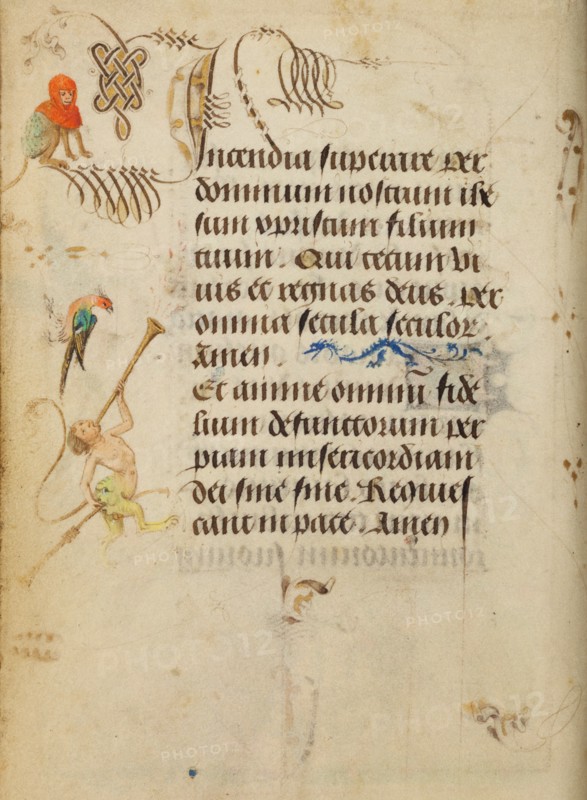 Incendia superare per
dominum nostrum ihe
sum xpristum filium
tuum. Qui tecum vi
uis et regnas deus. per
omnia secula seculor
Amen.
Et anime omniū fide
lium defunctorum per
piam misericordiam
dei sine fine. Requies
cant in pace. Amen
PHOTO12